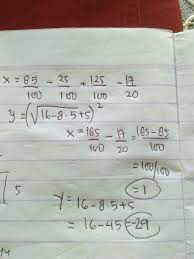 x = 85/100 - 25/100 + 125/100 - 17/20
y = (√16-8·5+5)²
x = 185/100 - 17/20 = 185-85
= 100/100
= 1
5
y = 16-8·5+5
= 16-45 = -29